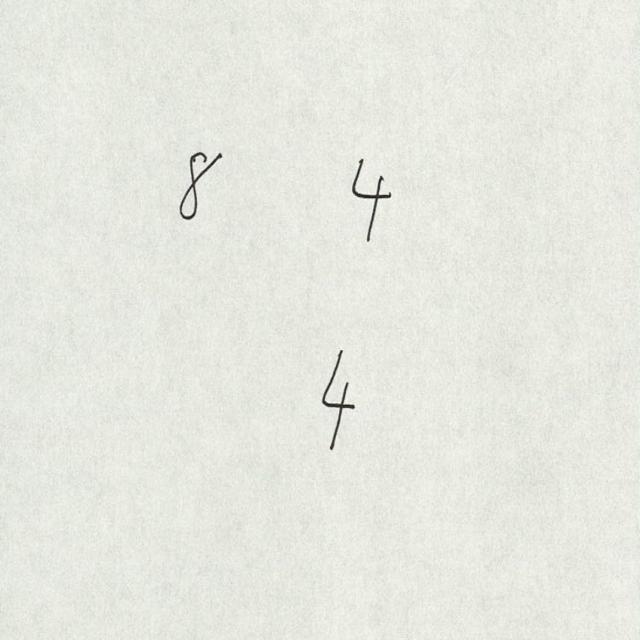 8 4
4